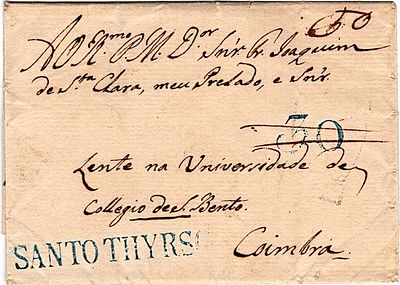 60
Ao Rmo P. M. Dor Snr. Fr. Joaquim
de Sta Clara, meu Prezado, e Snr.
30
Lente na Universidade de
Collegio de S. Bento.
SANTO THYRSO
Coimbra